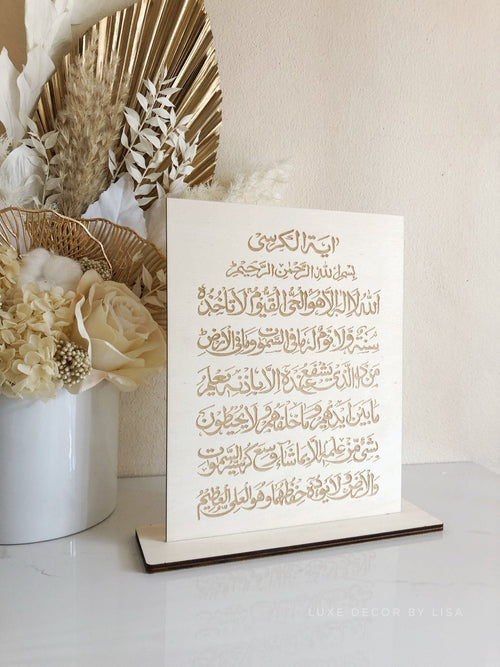 اية الكرسي
بسم الله الرحمن الرحيم
الله لا اله الا هو الحي القيوم لا تأخذه
سنة ولا نوم له ما في السموات وما في الارض
من ذا الذي يشفع عنده الا باذنه يعلم
ما بين ايديهم وما خلفهم ولا يحيطون
بشئ من علمه الا بما شاء وسع كرسيه السموات
والارض ولا يؤوده حفظهما وهو العلي العظيم
LUXE DECOR BY LISA